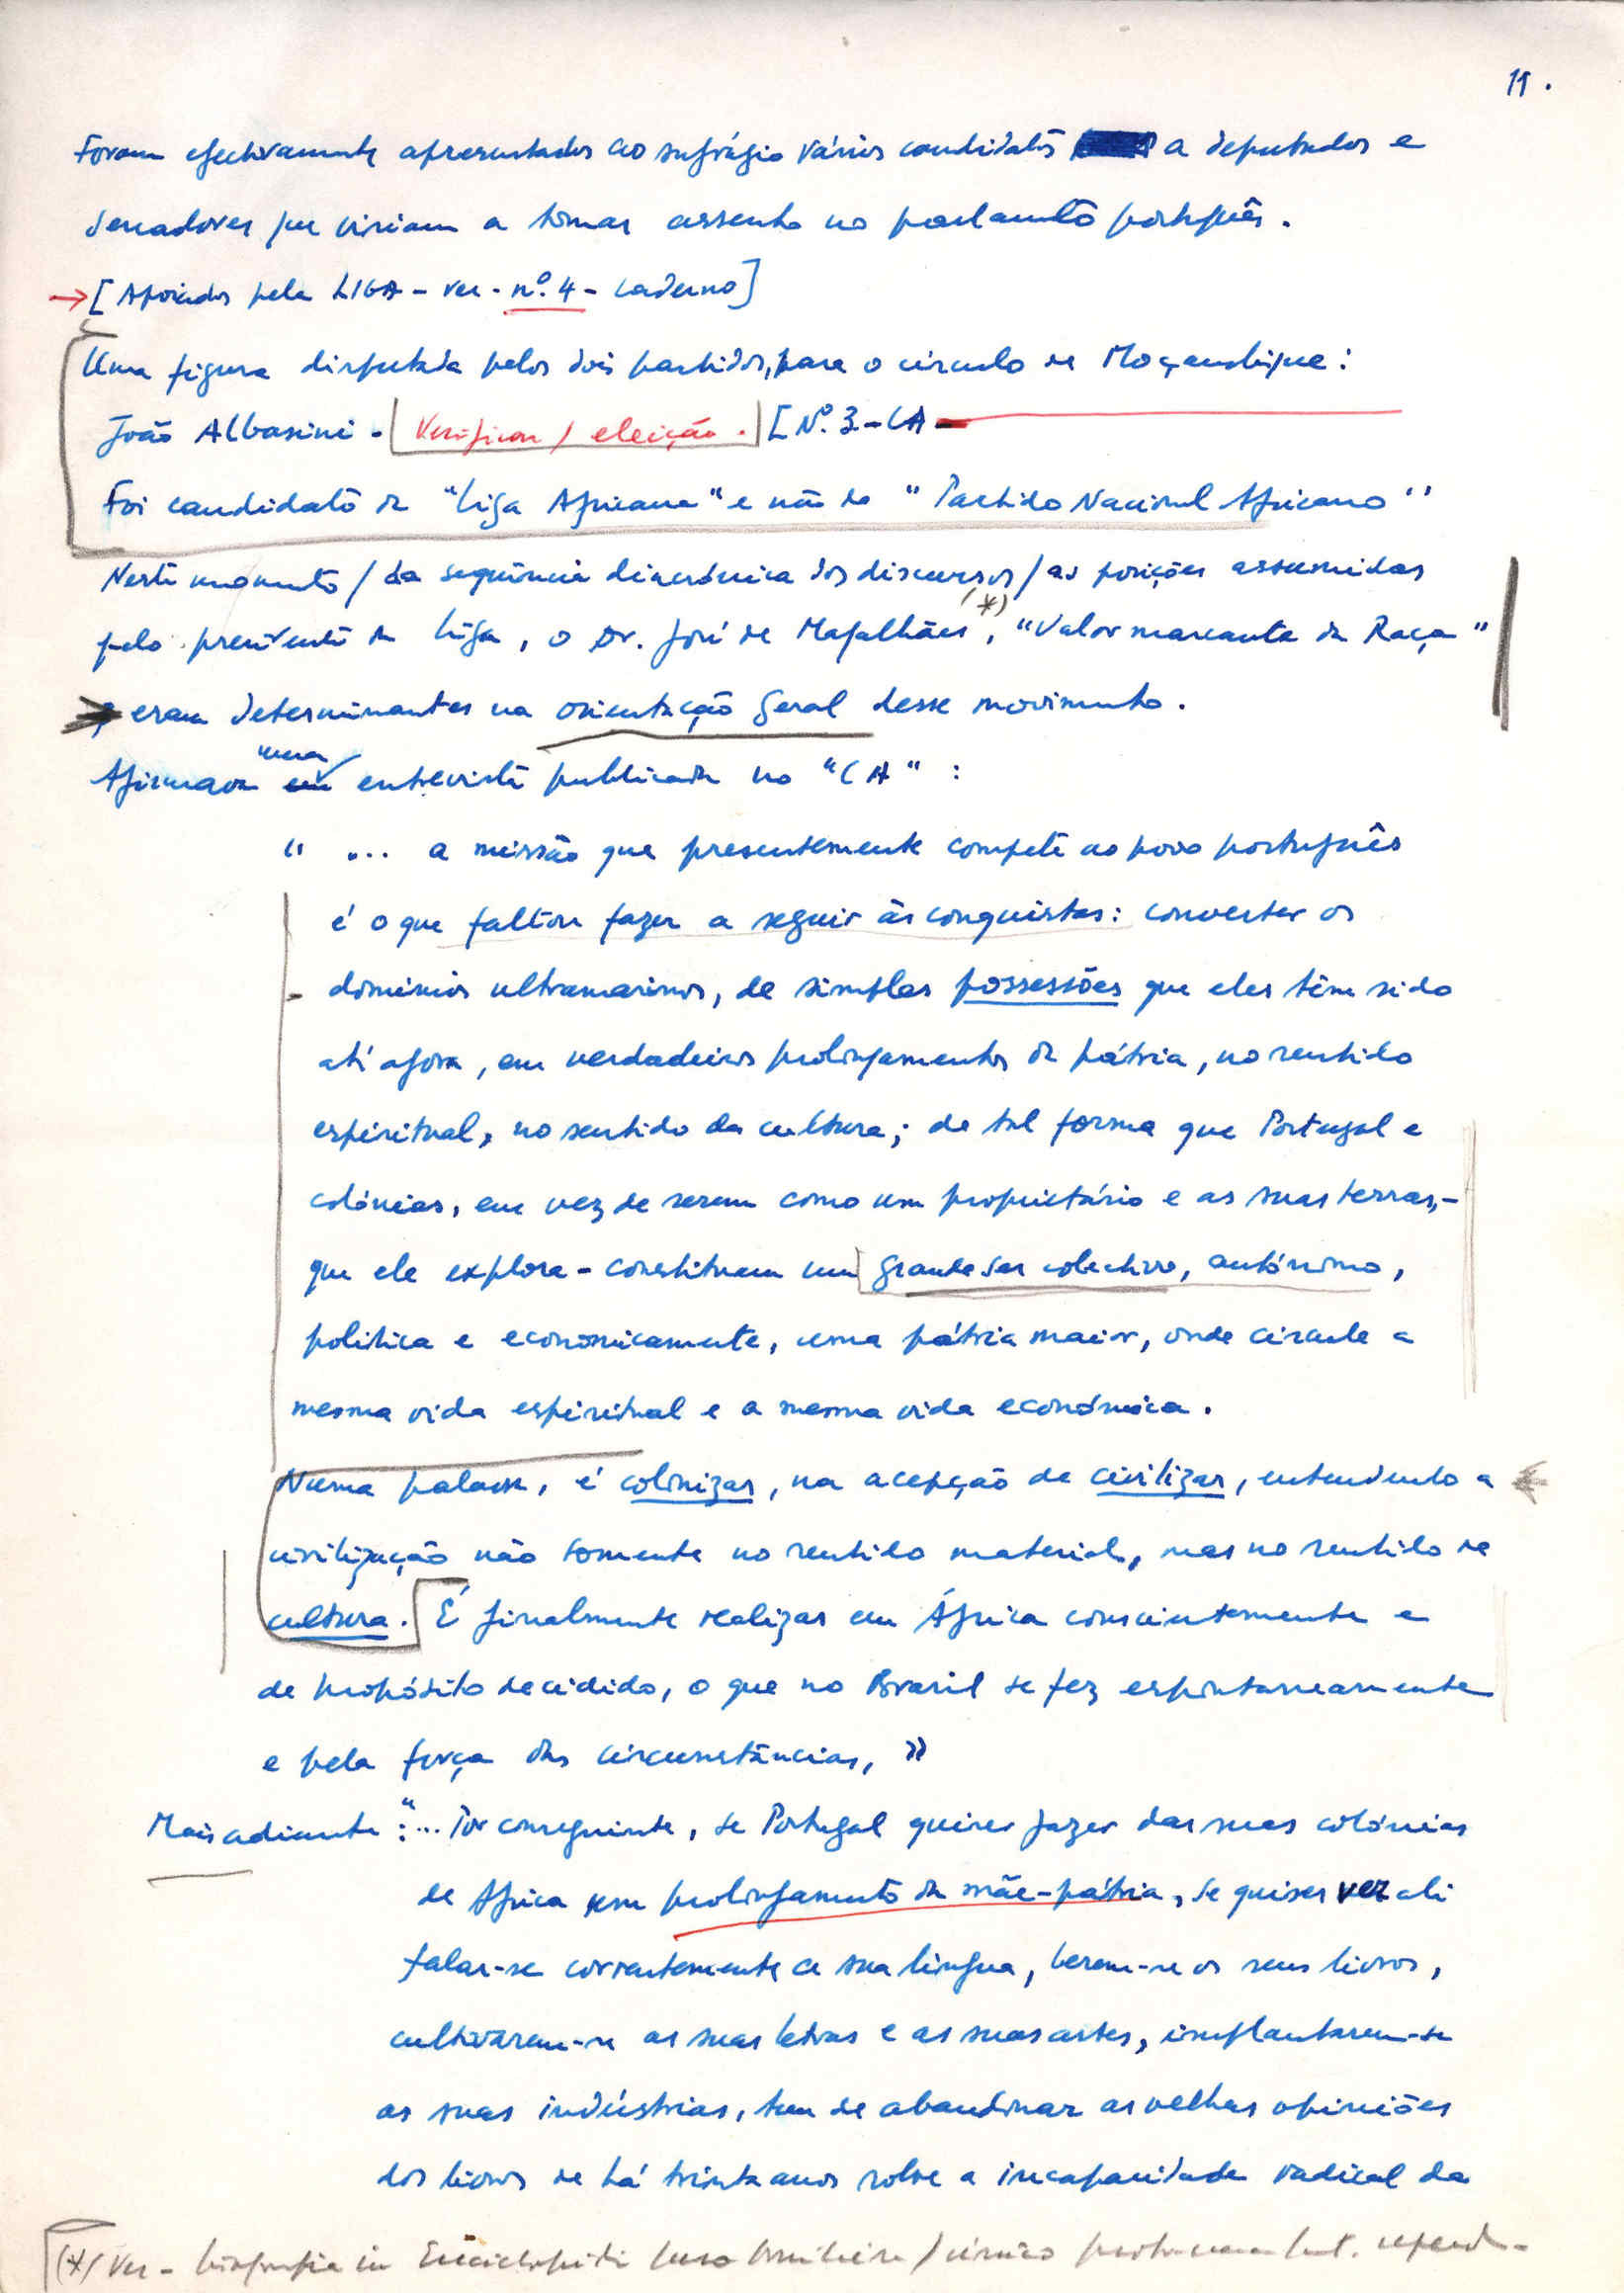 11.
Foram efectivamente apresentados ao sufrágio vários candidatos a deputados e
senadores que viriam a tomar assento no parlamento português.
→ [Apoiados pela LIGA - ver - nº. 4 - caderno]
Uma figura disputada pelos dois partidos, para o círculo de Moçambique:
João Albasini - Verificar / eleição. [Nº. 3 - CA
Foi candidato da "Liga Africana" e não do "Partido Nacional Africano"
Neste momento / da sequência diacrónica dos discursos / as posições assumidas
pelo presidente da Liga, o Dr. José de Magalhães (*), "Valor marcante da Raça"
, eram determinantes na orientação geral desse movimento.
Afirmava numa entrevista publicada no "CA" :
" ... a missão que presentemente compete ao povo português
é o que faltou fazer a seguir às conquistas: converter os
domínios ultramarinos, de simples possessões que eles têm sido
até agora, em verdadeiros prolongamentos da pátria, no sentido
espiritual, no sentido da cultura; de tal forma que Portugal e
colónias, em vez de serem como um proprietário e as suas terras, -
que ele explora - constituem um grande ser colectivo, autónomo,
política e economicamente, uma pátria maior, onde circule a
mesma vida espiritual e a mesma vida económica.
Numa palavra, é colonizar, na acepção de civilizar, entendendo a
civilização não somente no sentido material, mas no sentido de
cultura. É finalmente realizar em África conscientemente e
de propósito decidido, o que no Brasil se fez espontaneamente
e pela força das circunstâncias, »
Mais adiante : "... Por conseguinte, se Portugal quiser fazer das suas colónias
de África um prolongamento da mãe-pátria, se quiser ver ali
falar-se correntemente a sua língua, lerem-se os seus livros,
cultivarem-se as suas letras e as suas artes, implantarem-se
as suas indústrias, tem de abandonar as velhas opiniões
dos livros de há trinta anos sobre a incapacidade radical da
(*) Ver - biografia in Enciclopédia Luso Brasileira / único